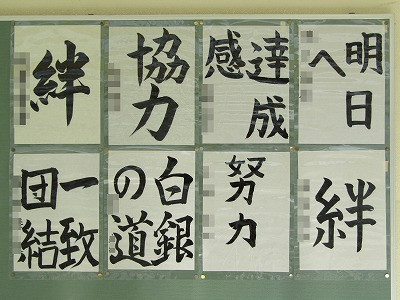 明日
へ
達成
感
協力
絆
絆
努力
白銀
の道
一致
団結